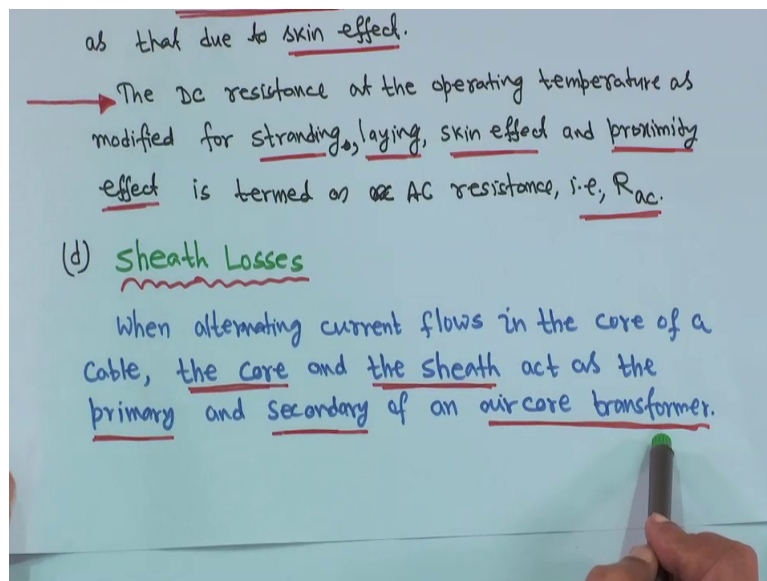 as that due to skin effect.
The DC resistance at the operating temperature as
modified for stranding, laying, skin effect and proximity
effect is termed as AC resistance, i.e., Rac.
(d) Sheath Losses
When alternating current flows in the core of a
cable, the core and the sheath act as the
primary and secondary of an air core transformer.